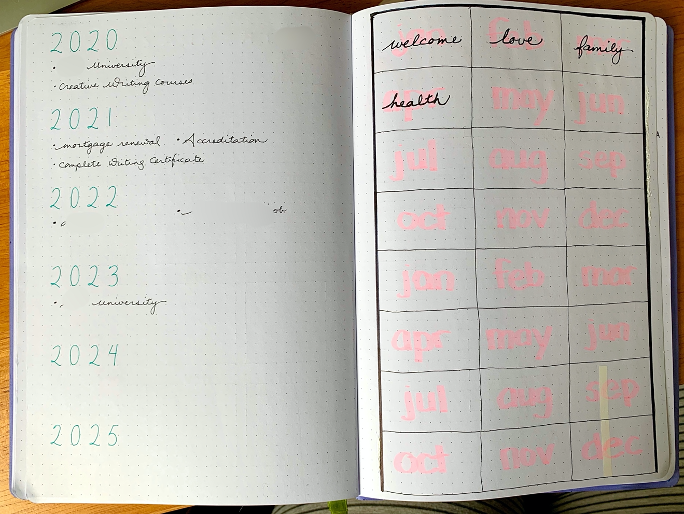 2020
University
· Creative Writing Courses
2021
· mortgage renewal · Accreditation
· Complete Writing Certificate
2022
2023
University
2024
2025
welcome love family
health
apr may jun
jul aug sep
oct nov dec
jan feb mar
apr may jun
jul aug sep
oct nov dec